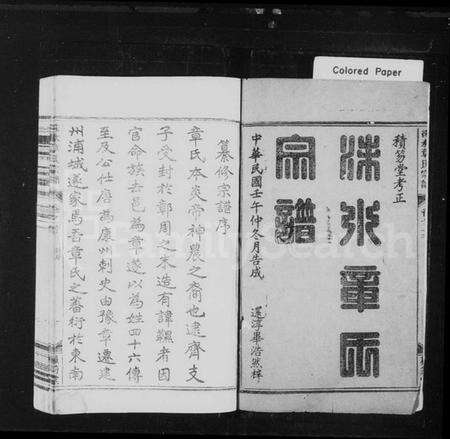 Colored Paper
積笏堂考正
洙水章氏
宗譜
中華民國壬午仲冬月告成
遂淳畢浩然梓
纂修宗譜序
章氏本炎帝神農之裔也逮齊支
子受封於鄣周之末造有諱韅者因
官命族去邑為章遂以為姓四十六傳
至及公仕唐為康州刺史由豫章遷建
州浦城遂家焉吾章氏之蕃衍於東南